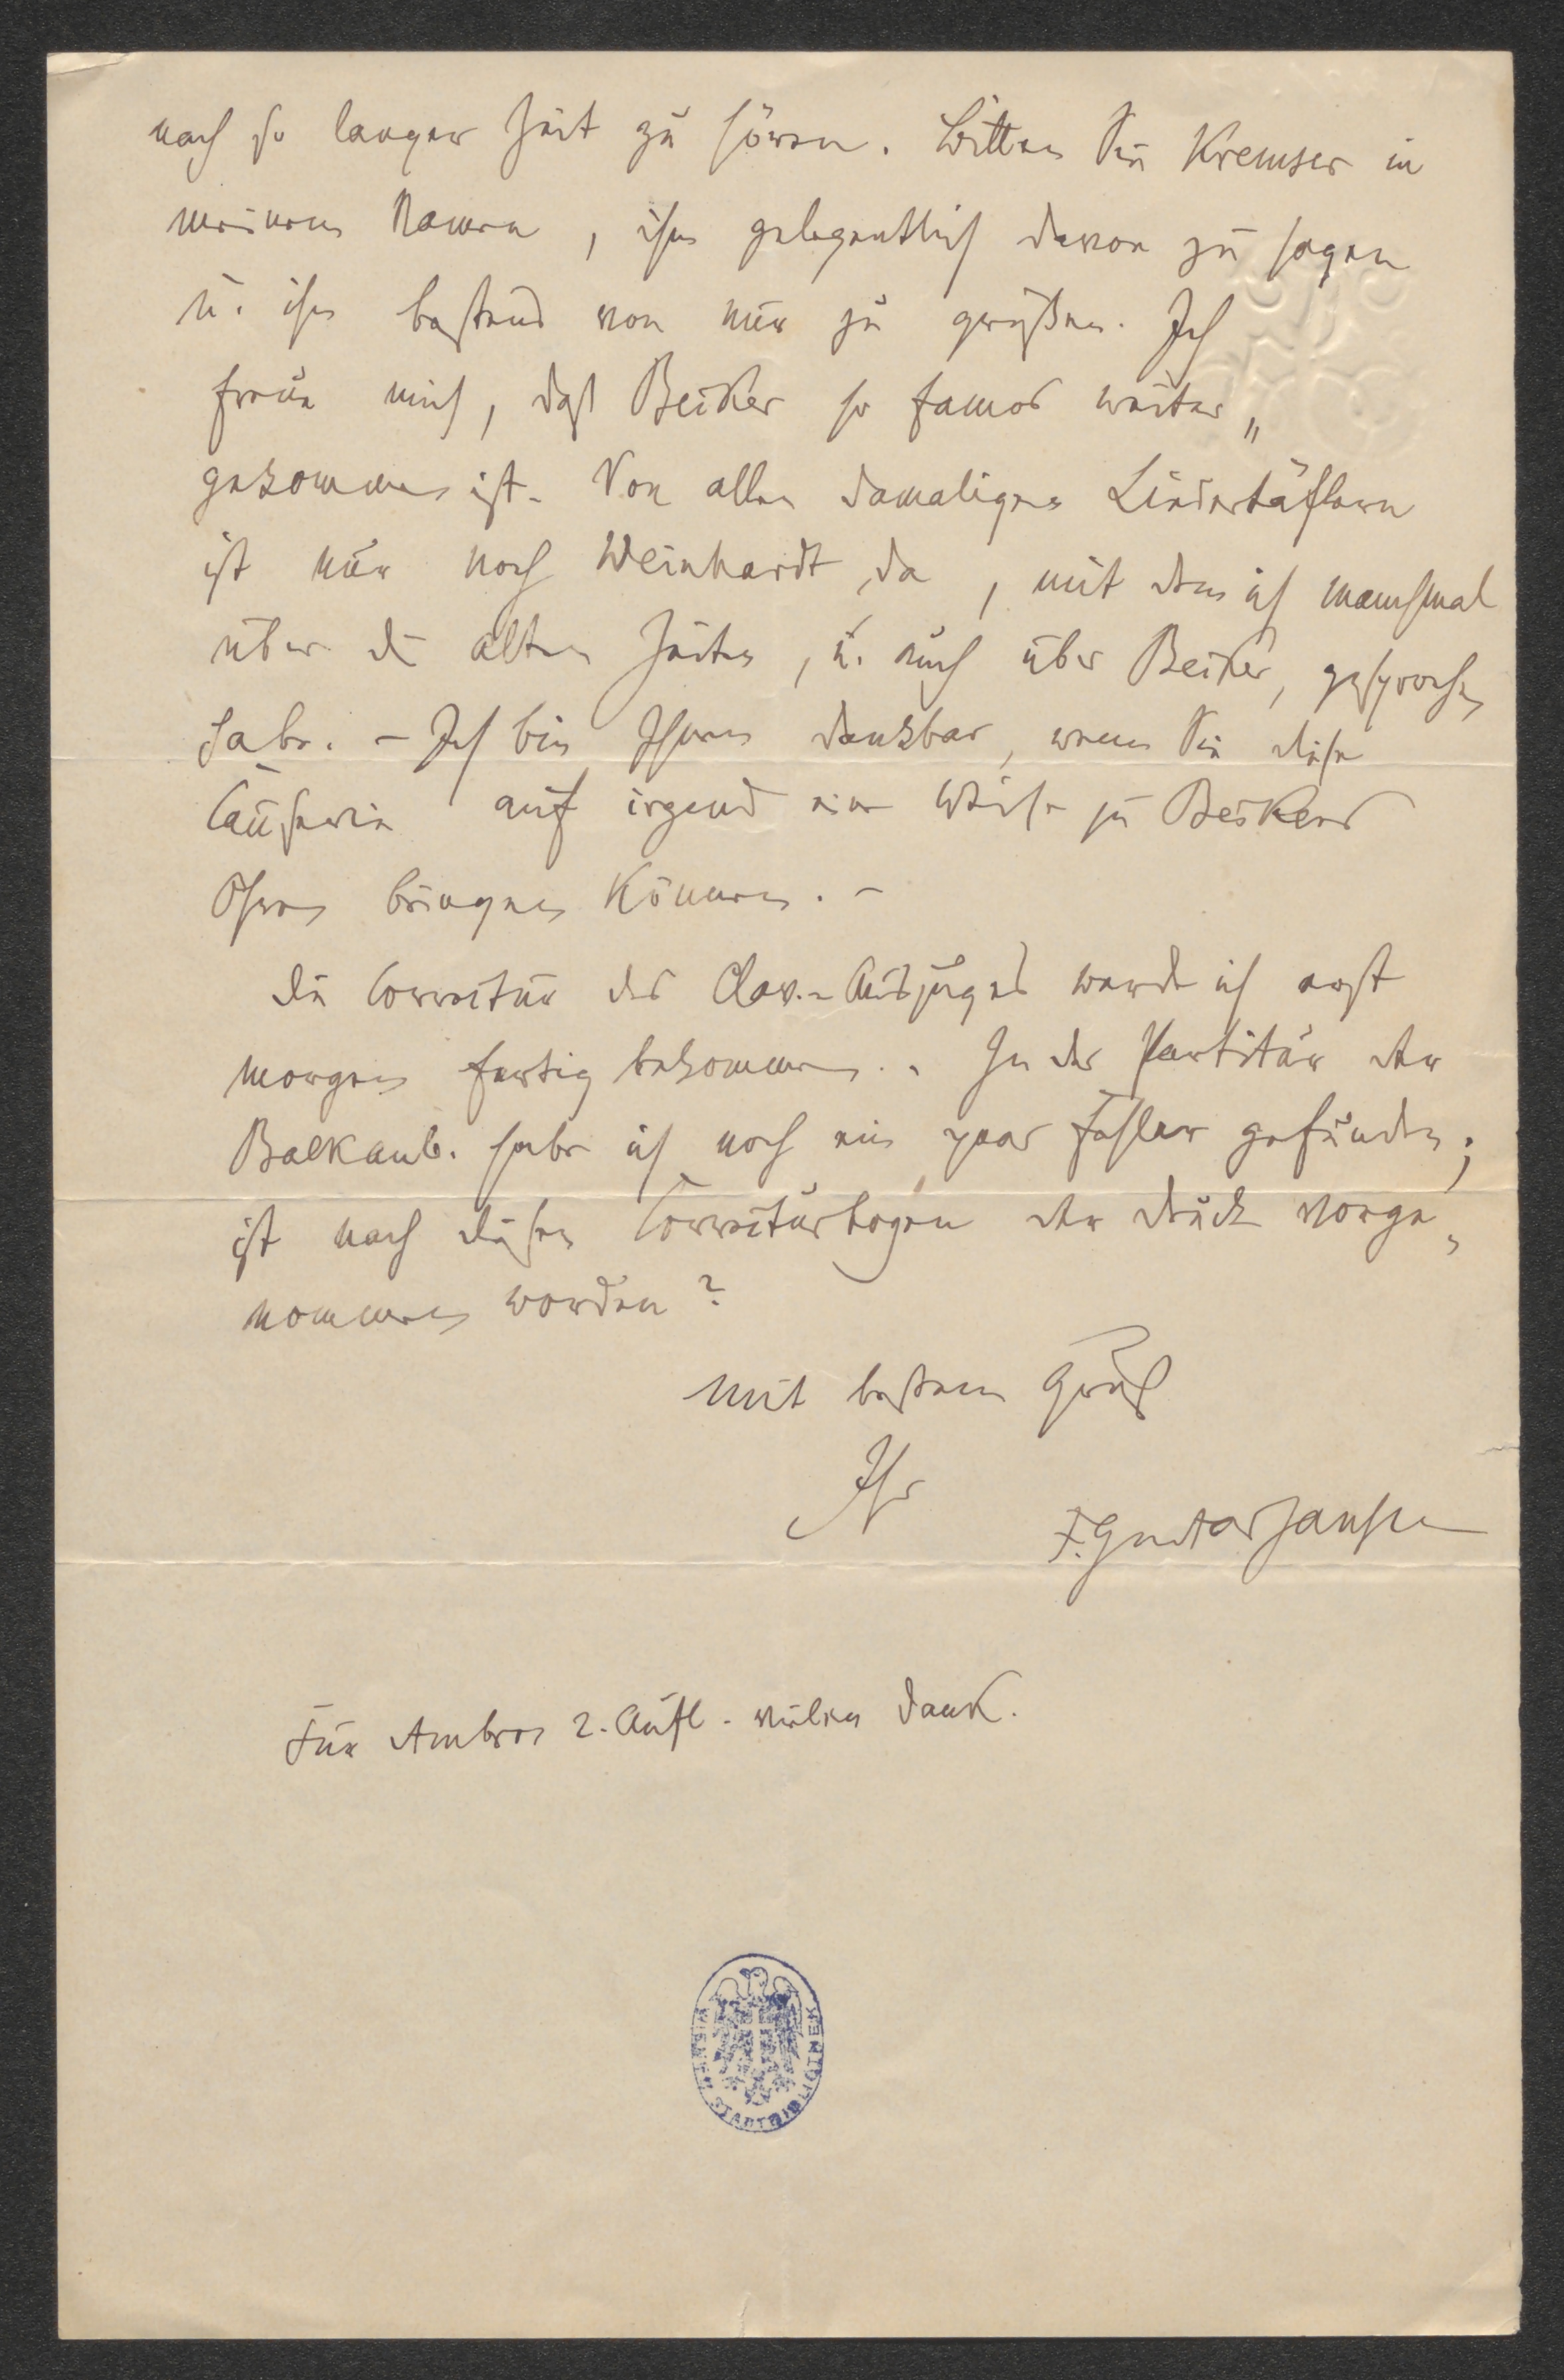 nach so langer Zeit zu hören. Bitten Sie Kremser in
meinem Namen, ihm gelegentlich davon zu sagen
u. ihn bestens von mir zu grüßen. Ich
freue mich, daß Beiker so famos weiter„
gekommen ist. Von allen damaligen Liedertäflern
ist nur noch Weinhardt da, mit dem ich manchmal
über die alten Zeiten, u. auch über Beiker, gesprochen
habe. – Ich bin Ihnen dankbar, wenn Sie diese
Causerie auf irgend eine Weise zu Beikers
Ohren bringen können. –
Die Correctur des Clav.-Auszuges werde ich erst
morgen fertig bekommen. In der Partitur der
Balkanb. habe ich noch ein paar Fehler gefunden;
ist nach diesen Correcturbogen der Druck vorge„
nommen worden?
Mit bestem Gruß
Ihr
F. Gustav Jansen
Für Ambros 2. Aufl. vielen Dank.
WIENER STADTBIBLIOTHEK